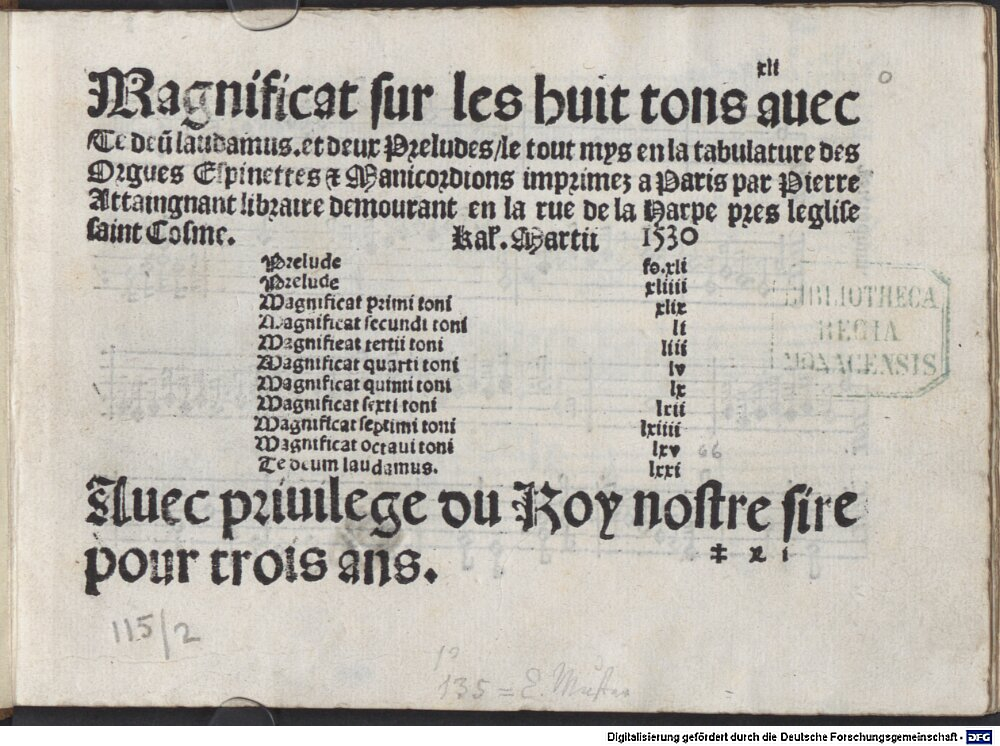 xli
Magnificat sur les huit tons auec
Te deū laudamus. et deux Preludes/le tout mys en la tabulature des
Orgues Espinettes & Manicordions imprimez a Paris par Pierre
Attaingnant libraire demourant en la rue de la Harpe pres leglise
saint Cosme. Kal. Martii 1530
Prelude fo.xli
Prelude xliiii
Magnificat primi toni xlix
Magnificat secundi toni li
Magnificat tertii toni liii
Magnificat quarti toni lv
Magnificat quinti toni lx
Magnificat sexti toni lxii
Magnificat septimi toni lxiiii
Magnificat octaui toni lxv 66
Te deum laudamus. lxxi
Auec priuilege du Roy nostre sire
pour trois ans. ‡ x i
LIBLIOTHECA
REGIA
MONACENSIS
115/2
135 = E.
Digitalisierung gefördert durch die Deutsche Forschungsgemeinschaft - DFG